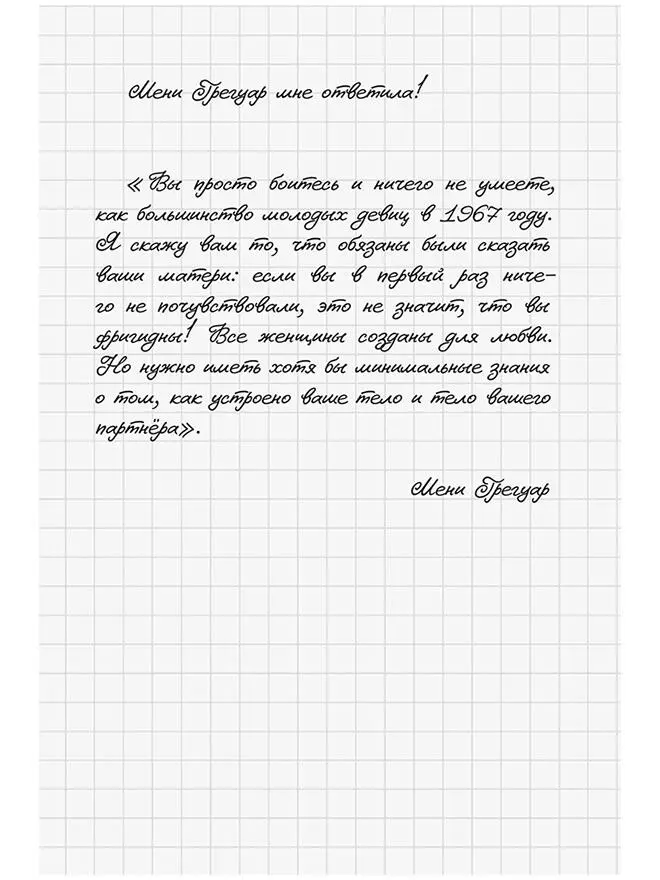 Мени Грегуар мне ответила!
«Вы просто боитесь и ничего не умеете,
как большинство молодых девиц в 1967 году.
Я скажу вам то, что обязаны были сказать
ваши матери: если вы в первый раз ниче-
го не почувствовали, это не значит, что вы
фригидны! Все женщины созданы для любви.
Но нужно иметь хотя бы минимальные знания
о том, как устроено ваше тело и тело вашего
партнёра».
Мени Грегуар